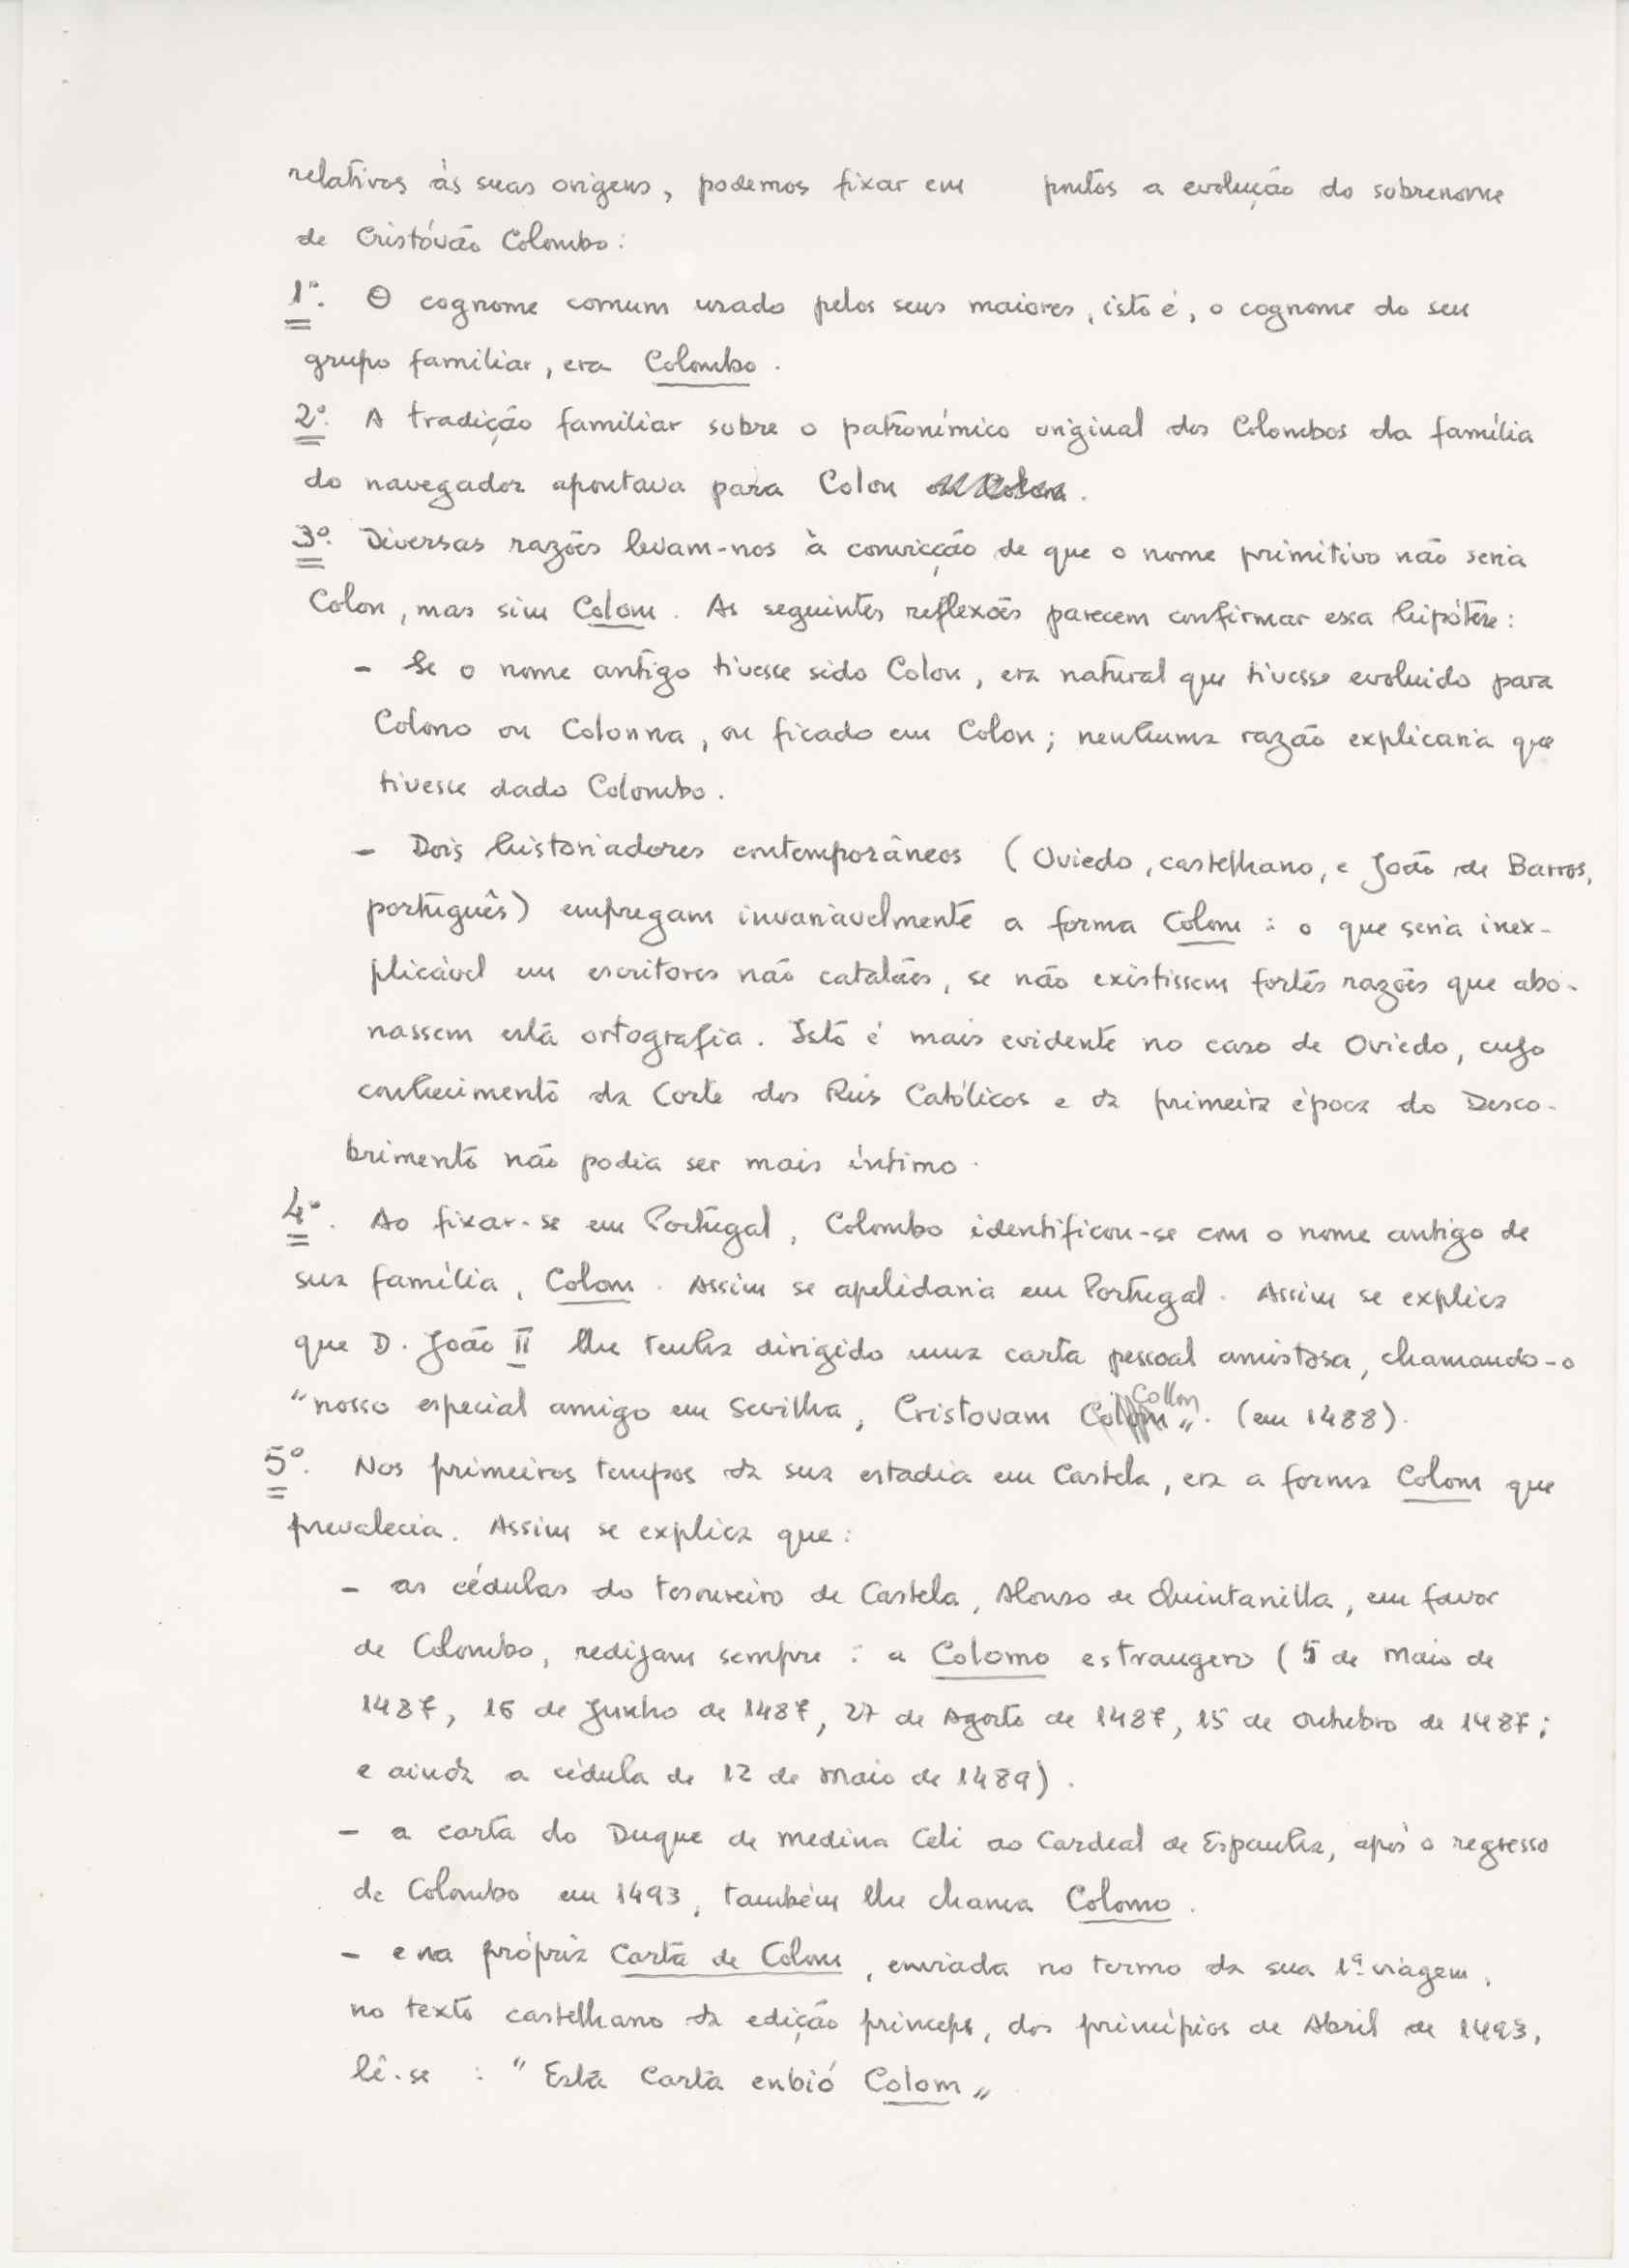 relativos às suas origens, podemos fixar em pontos a evolução do sobrenome
de Cristóvão Colombo:
1º. O cognome comum usado pelos seus maiores, isto é, o cognome do seu
grupo familiar, era Colombo.
2º. A tradição familiar sobre o patronímico original dos Colombos da família
do navegador apontava para Colon .
3º. Diversas razões levam-nos à convicção de que o nome primitivo não seria
Colon, mas sim Colom. As seguintes reflexões parecem confirmar essa hipótese:
- Se o nome antigo tivesse sido Colon, era natural que tivesse evoluido para
Colono ou Colonna, ou ficado em Colon; nenhuma razão explicaria que
tivesse dado Colombo.
- Dois historiadores contemporâneos (Oviedo, castelhano, e João de Barros,
português) empregam invariavelmente a forma Colom: o que seria inex-
plicável em escritores não catalães, se não existissem fortes razões que abo-
nassem esta ortografia. Isto é mais evidente no caso de Oviedo, cujo
conhecimento da Corte dos Reis Católicos e da primeira época do Desco-
brimento não podia ser mais íntimo.
4º. Ao fixar-se em Portugal, Colombo identificou-se com o nome antigo de
sua família, Colom. Assim se apelidaria em Portugal. Assim se explica
que D. João II lhe tenha dirigido uma carta pessoal amistosa, chamando-o
"nosso especial amigo em Sevilha, Cristovam Collon". (em 1488).
5º. Nos primeiros tempos da sua estadia em Castela, era a forma Colom que
prevalecia. Assim se explica que:
- as cédulas do tesoureiro de Castela, Alonso de Quintanilla, em favor
de Colombo, redijam sempre: a Colomo estrangero (5 de Maio de
1487, 16 de Junho de 1487, 27 de Agosto de 1487, 15 de Outubro de 1487;
e ainda a cédula de 12 de Maio de 1489).
- a carta do Duque de Medina Celi ao Cardeal de Espanha, após o regresso
de Colombo em 1493, também lhe chama Colomo.
- e na própria Carta de Colom, enviada no termo da sua 1ª viagem,
no texto castelhano da edição princeps, dos princípios de Abril de 1493,
lê-se : "Esta Carta enbió Colom"